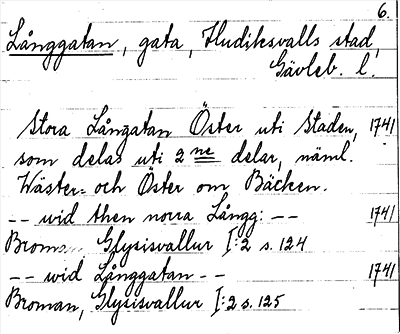 6.
Långgatan, gata, Hudiksvalls stad,
Gävleb. l.
Stora Långatan Öster uti Staden, 1741
som delas uti 2 ne delar, näml.
Wäster- och Öster om Bäcken.
-- wid then norra Långg: -- 1741
Broman Glysisvallur I:2 s. 124
-- wid Långgatan -- 1741
Broman, Glysisvallur I:2 s. 125